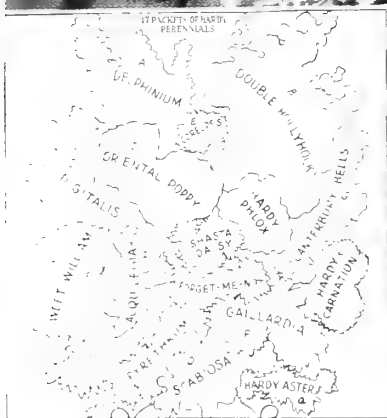 17 PACKETS OF HARDY
PERENNIALS
DELPHINIUM
DOUBLE HOLLYHOLK
ORIENTAL POPPY
DIGITALIS
HARDY
PHLOX
CANTERBURY BELLS
SHASTA
DAISY
SWEET WILLIAM
AQUILEGIA
FORGET-ME-NOT
HARDY
CARNATION
GAILLARDIA
PYRETHRUM
SCABIOSA
HARDY ASTERS